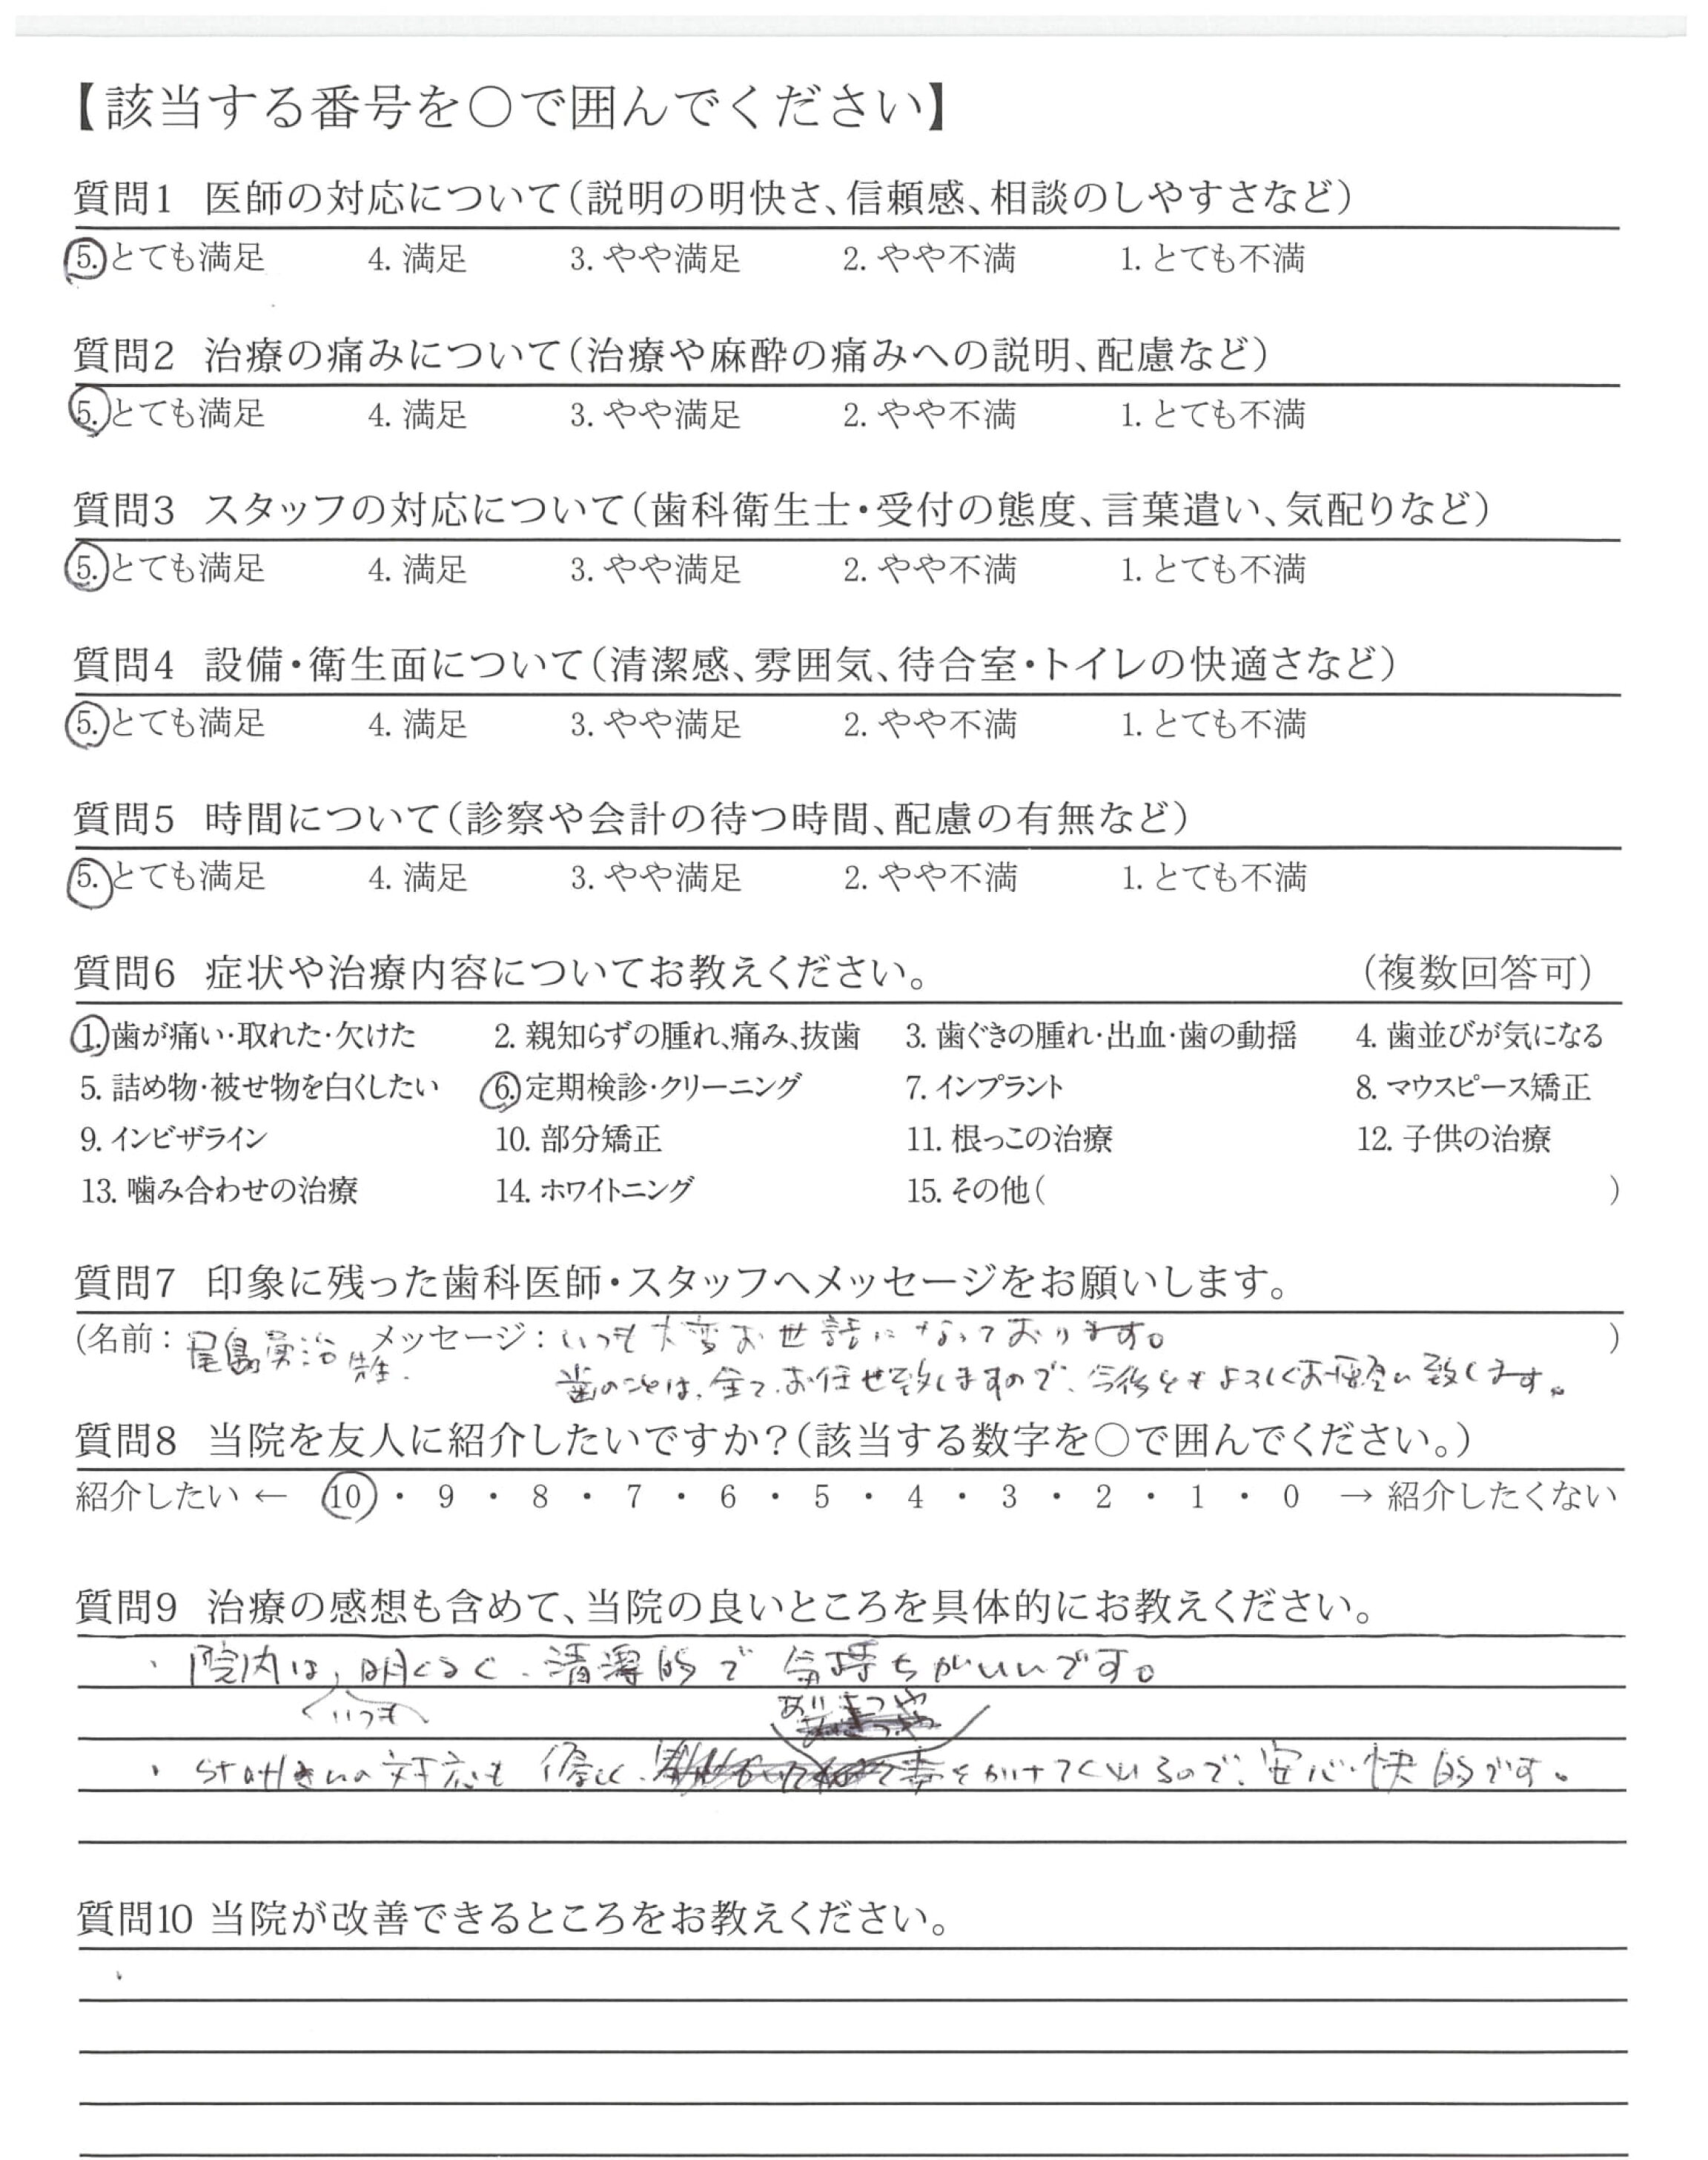 【該当する番号を○で囲んでください】
質問1 医師の対応について(説明の明快さ、信頼感、相談のしやすさなど)
5. とても満足 4. 満足 3. やや満足 2. やや不満 1. とても不満
質問2 治療の痛みについて(治療や麻酔の痛みへの説明、配慮など)
5. とても満足 4. 満足 3. やや満足 2. やや不満 1. とても不満
質問3 スタッフの対応について(歯科衛生士・受付の態度、言葉遣い、気配りなど)
5. とても満足 4. 満足 3. やや満足 2. やや不満 1. とても不満
質問4 設備・衛生面について(清潔感、雰囲気、待合室・トイレの快適さなど)
5. とても満足 4. 満足 3. やや満足 2. やや不満 1. とても不満
質問5 時間について(診察や会計の待つ時間、配慮の有無など)
5. とても満足 4. 満足 3. やや満足 2. やや不満 1. とても不満
質問6 症状や治療内容についてお教えください。 (複数回答可)
1. 歯が痛い・取れた・欠けた 2. 親知らずの腫れ、痛み、抜歯 3. 歯ぐきの腫れ・出血・歯の動揺 4. 歯並びが気になる
5. 詰め物・被せ物を白くしたい 6. 定期検診・クリーニング 7. インプラント 8. マウスピース矯正
9. インビザライン 10. 部分矯正 11. 根っこの治療 12. 子供の治療
13. 噛み合わせの治療 14. ホワイトニング 15. その他( )
質問7 印象に残った歯科医師・スタッフへメッセージをお願いします。
(名前: 尾島勇治先生. メッセージ: いつも大変お世話になっております。 )
歯のことは、全て、お任せ致しますので、今後ともよろしくお願い致します。
質問8 当院を友人に紹介したいですか?(該当する数字を○で囲んでください。)
紹介したい ← 10 ・ 9 ・ 8 ・ 7 ・ 6 ・ 5 ・ 4 ・ 3 ・ 2 ・ 1 ・ 0 → 紹介したくない
質問9 治療の感想も含めて、当院の良いところを具体的にお教えください。
・院内は、明くるく、清潔的で気持ちがいいです。
いつも
あいさつや
・staffさんの対応も優しく、声をかけてくれるので、安心・快的です。
質問10 当院が改善できるところをお教えください。